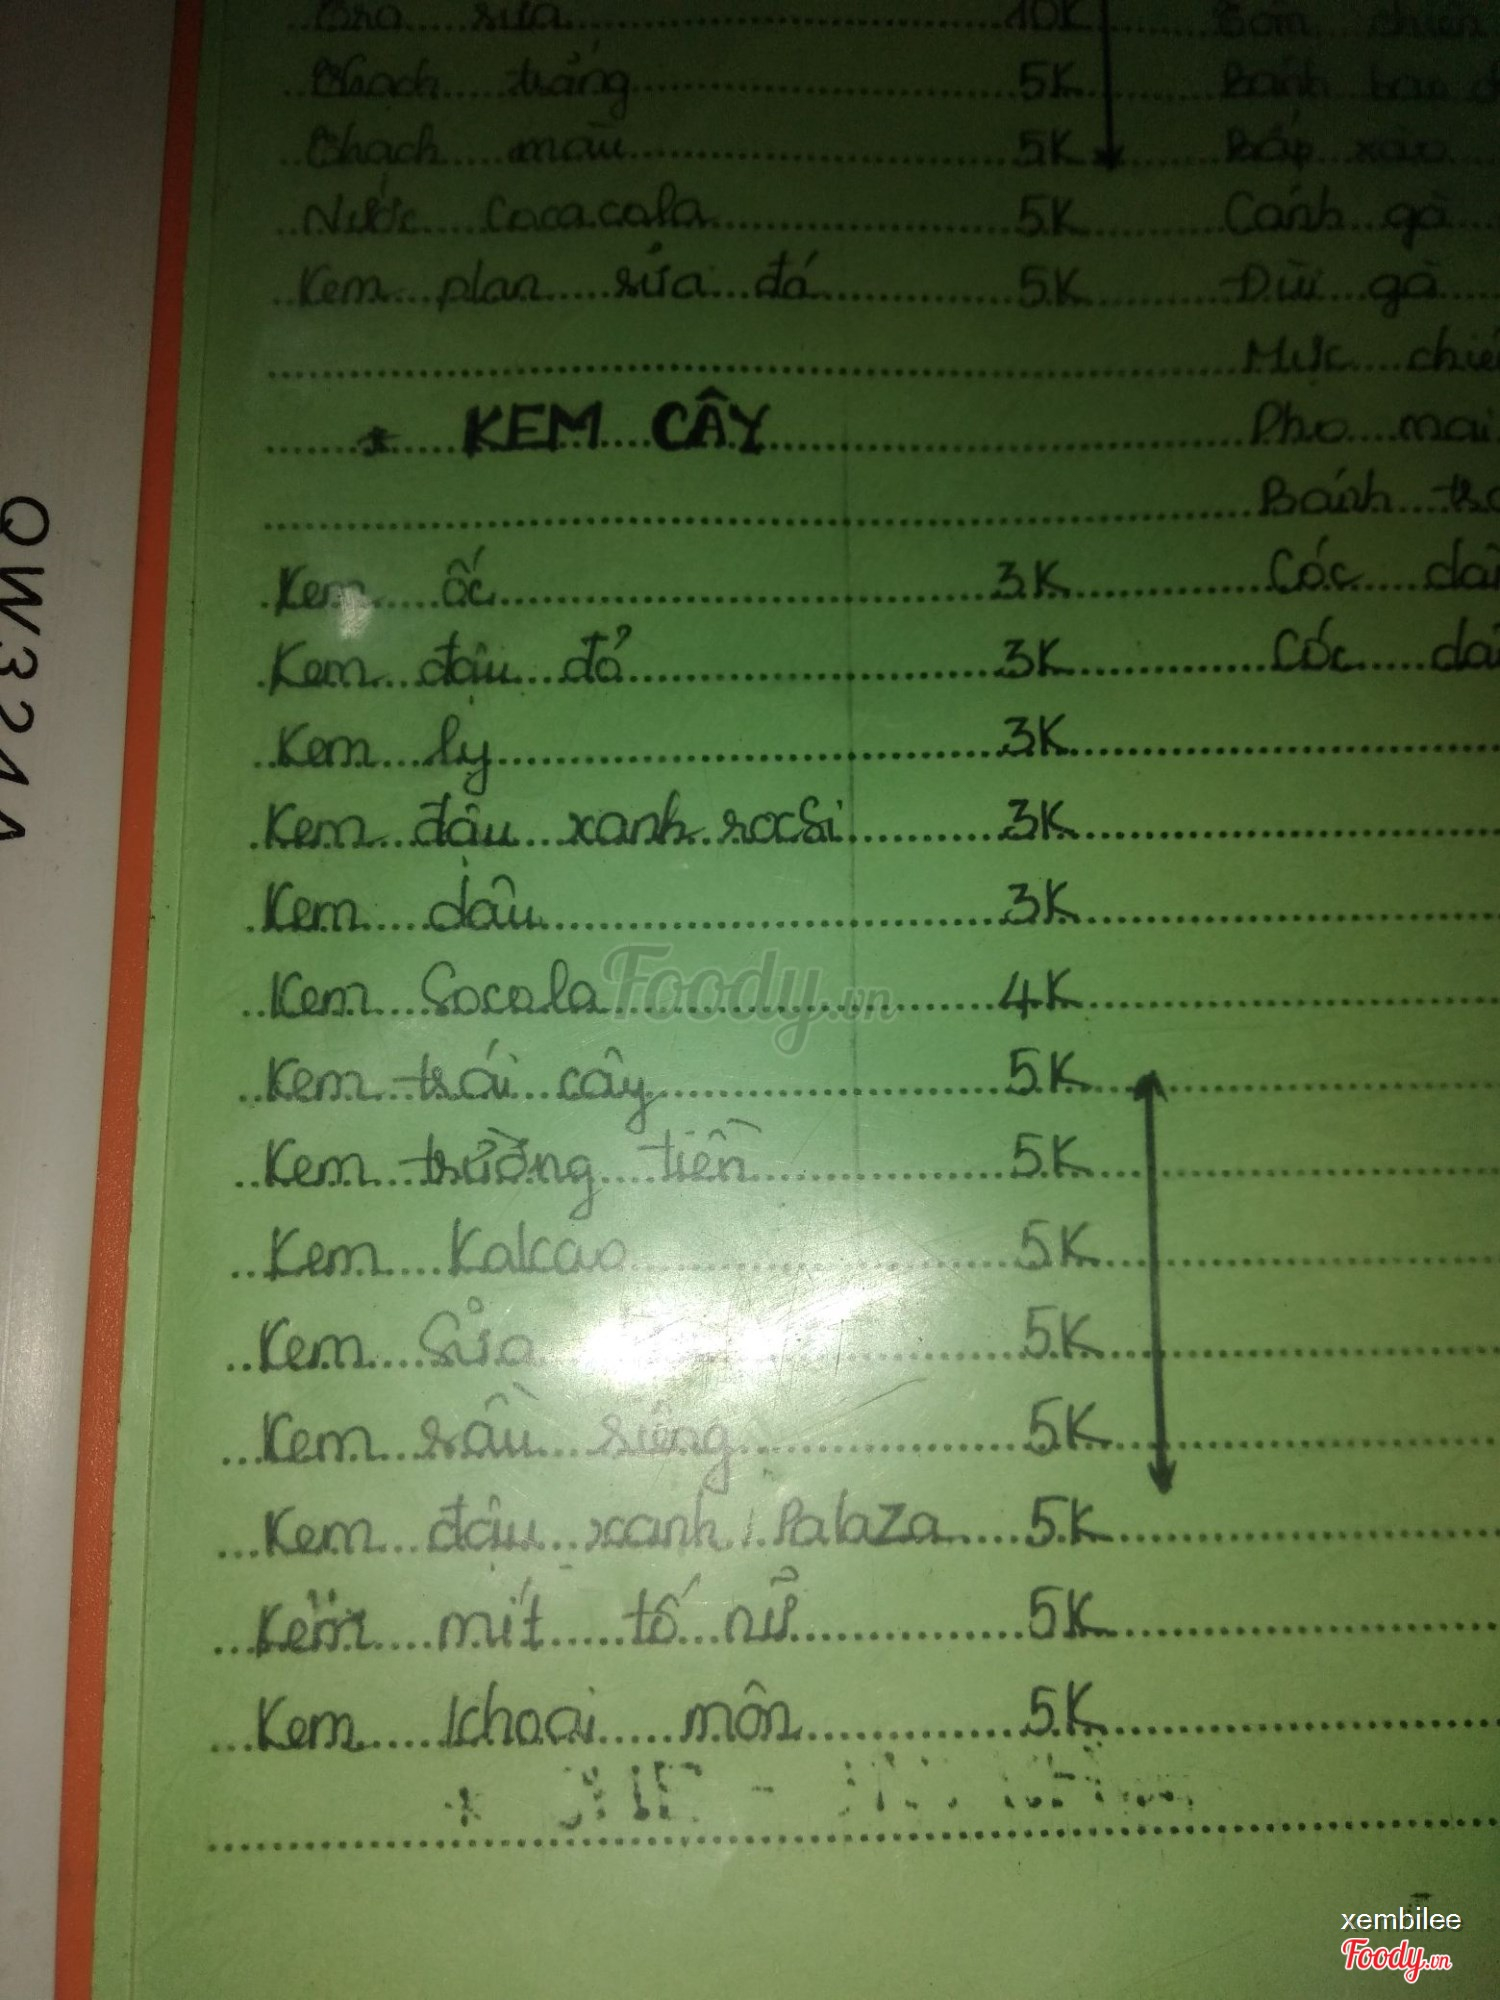 sữa 10K
Thạch trắng 5K
Thạch màu 5K
Nước Cocacola 5K
Kem plan sữa đá 5K
* KEM CÂY
Kem ốc 3K
Kem đậu đỏ 3K
Kem ly 3K
Kem đậu xanh rocSi 3K
Kem dâu 3K
Kem Socola 4K
Kem trái cây 5K
Kem trường tiền 5K
Kem Kalcao 5K
Kem Sữa 5K
Kem sầu riêng 5K
Kem đậu xanh Palaza 5K
Kem mít tố nữ 5K
Kem khoai môn 5K
chiên
Bánh bao
Bắp xào
Cánh gà
Đùi gà
Mực chiê
Pho mai
Bánh tr
Cóc dầ
Cóc dầ
QW3211
Foody.vn
xembilee
Foody.vn